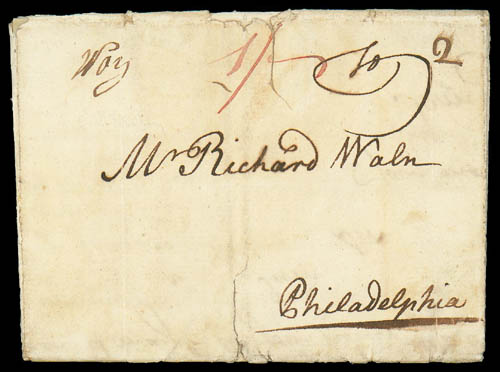 Way 1/- 10 2
Mr Richard Waln
Philadelphia